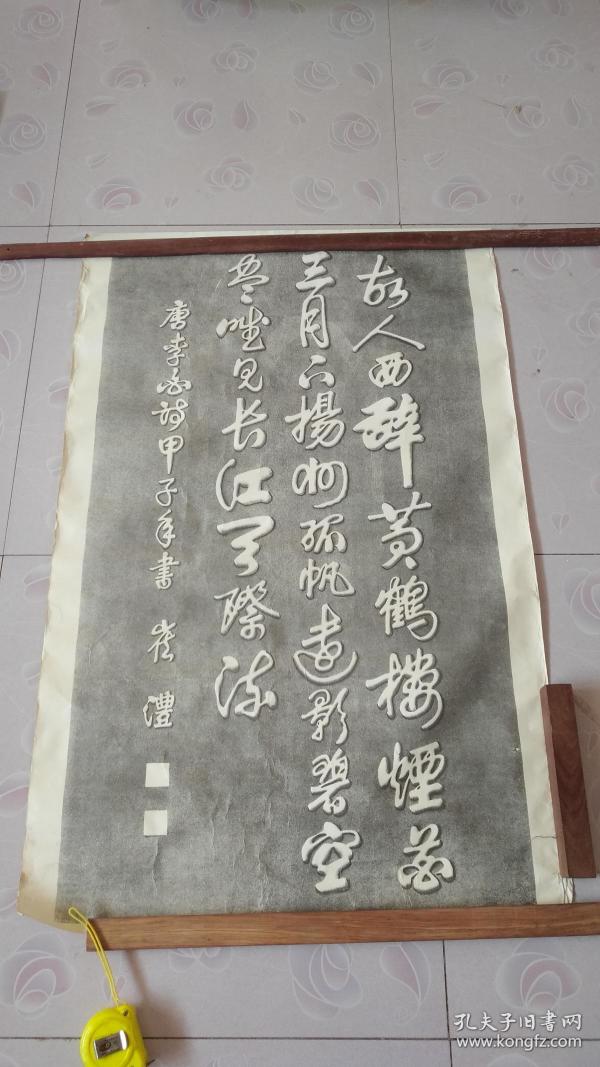 故人西辭黄鹤楼煙花
三月下揚州孤帆遠影碧空
尽唯见长江天際流
唐李白詩甲子年書 崔澧
孔夫子旧書网
www.kongfz.com